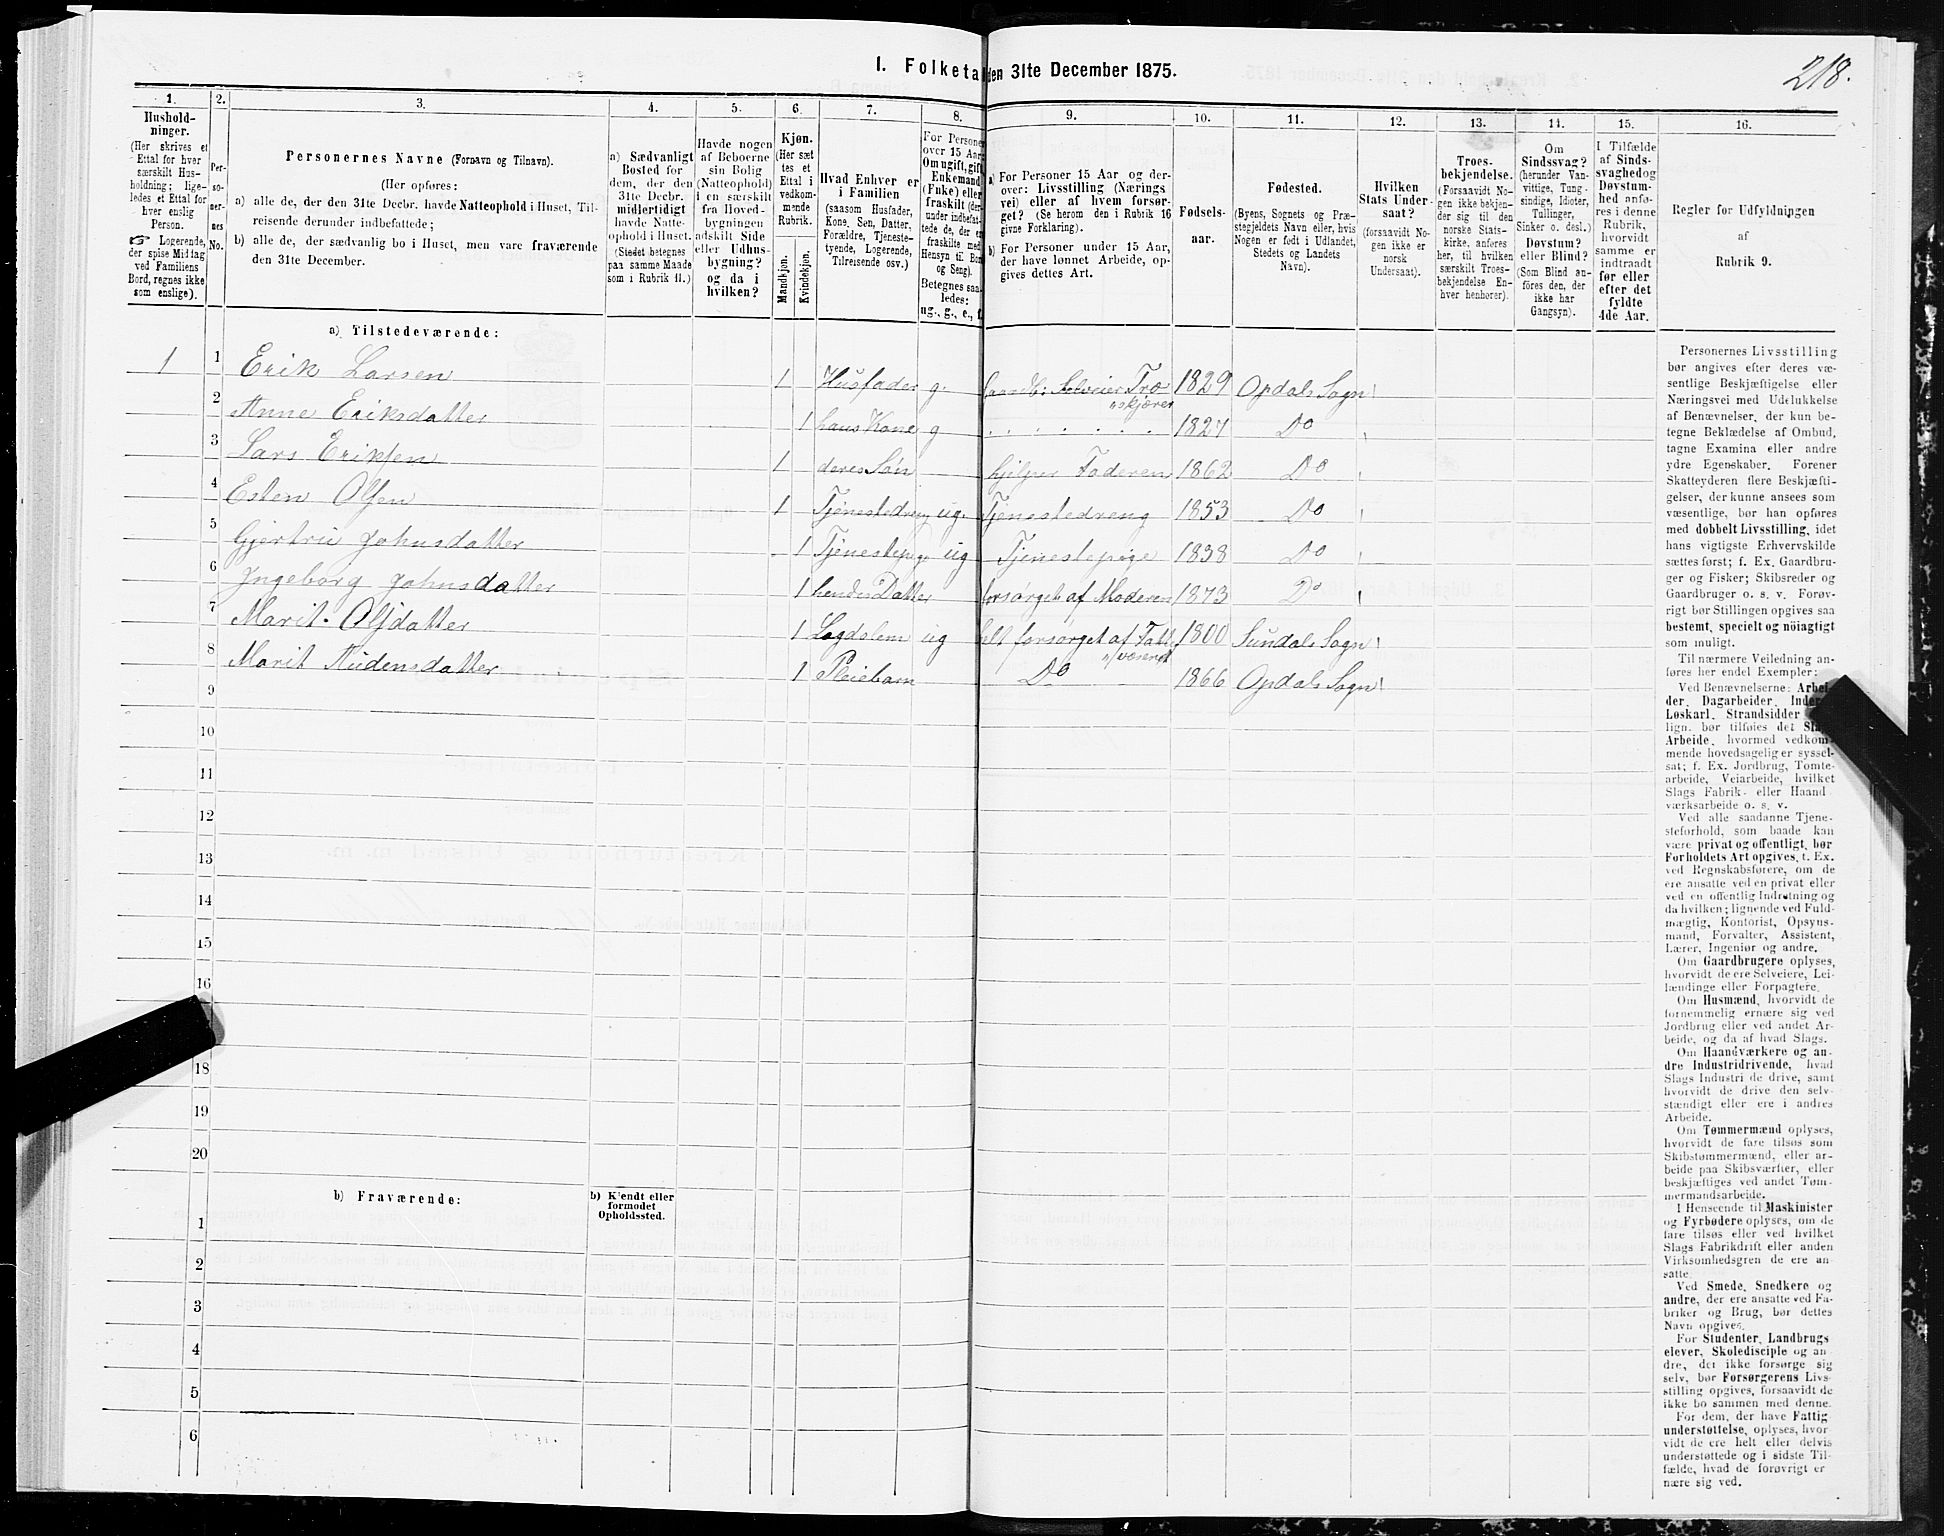 218.
I. Folketa den 31te December 1875.
1.
Hushold-
ninger.
(Her skrives et
Ettal for hver
særskilt Hus-
holdning; lige-
ledes et Ettal for
hver enslig
Person.
☞ Logerende,
der spise Middag
ved Familiens
Bord, regnes ikke
som enslige).
2.
Per-
so-
ner-
nes
No.
3.
Personernes Navne (Fornavn og Tilnavn).
(Her opføres:
a) alle de, der den 31te Decbr. havde Natteophold i Huset, Til-
reisende derunder indbefattede;
b) alle de, der sædvanlig bo i Huset, men vare fraværende
den 31te December.
4.
a) Sædvanligt
Bosted for
dem, der den
31te Decbr.
midlertidigt
havde Natte-
ophold i Huset.
(Stedet betegnes
paa samme Maade
som i Rubrik 11.)
5.
Havde nogen
af Beboerne
sin Bolig
(Natteophold)
i en særskilt
fra Hoved-
bygningen
adskilt Side
eller Udhus-
bygning?
og da i
hvilken?
6.
Kjøn.
(Her sæt
tes et
Ettal i
vedkom-
mende
Rubrik.
Mandkjøn.
Kvindekjøn.
7.
Hvad Enhver er
i Familien
(saasom Husfader,
Kone, Søn, Datter,
Forældre, Tjeneste-
tyende, Logerende,
Tilreisende osv.)
8.
For Personer
over 15 Aar:
Om ugift, gift
Enkemand
(Enke) eller
fraskilt (der-
under indbefat-
tede de, der er
fraskilte med
Hensyn til Bord
og Seng).
Betegnes saa-
ledes:
ug., g., e., f.
9.
a) For Personer 15 Aar og der-
over: Livsstilling (Nærings
vei) eller af hvem forsør-
get? (Se herom den i Rubrik 16
givne Forklaring).
b) For Personer under 15 Aar,
der have lønnet Arbeide, op-
gives dettes Art.
10.
Fødsels-
aar.
11.
Fødested.
(Byens, Sognets og Præ-
stegjeldets Navn eller, hvis
Nogen er født i Udlandet,
Stedets og Landets
Navn).
12.
Hvilken
Stats Under-
saat?
(forsaavidt No-
gen ikke er
norsk
Undersaat).
13.
Troes-
bekjendelse.
(Forsaavidt No-
gen ikke bekjen-
der sig til den
norske Stats-
kirke, anføres
her, til hvilken
særskilt Troes-
bekjendelse En-
hver henhører).
14.
Om
Sindssvag?
(herunder Van-
vittige, Tung-
sindige, Idioter,
Tullinger,
Sinker o. desl.)
Døvstum?
eller Blind?
(Som Blind an-
føres den, der
ikke har
Gangsyn).
15.
I Tilfælde
af Sinds-
svaghed og
Døvstum-
hed anfø-
res i denne
Rubrik,
hvorvidt
samme er
indtraadt
før eller
efter det
fyldte
4de Aar.
16.
Regler for Udfyldningen
af
Rubrik 9.
a) Tilstedeværende:
1 1 Erik Larsen 1 Husfader g. Gaardbr: Selveier Træ 1829 Opdals Sogn
"skjærer
2 Anne Eriksdatter 1 hans Kone g . . . . . . . 1827 Do
3 Lars Eriksen 1 deres Søn hjelper Faderen 1862 Do
4 Esten Olsen 1 Tjenestedreng ug. Tjenestedreng 1853 Do
5 Gjertrud Johnsdatter 1 Tjenestepige ug Tjenestepige 1838 Do
6 Ingeborg Johnsdatter 1 hendes Datter forsørget af Moderen 1873 Do
7 Marit Olsdatter 1 Lægdslem ug helt forsørget af Fattig 1800 Sundals Sogn
"væsenet
8 Marit Audensdatter 1 Pleiebarn Do 1866 Opdals Sogn
9
10
11
12
13
14
15
16
18
19
20
b) Fraværende:
b) Kjendt eller
formodet
Opholdssted.
1
2
3
4
5
6
Personernes Livsstilling
bør angives efter deres væ-
sentlige Beskjæftigelse eller
Næringsvei med Udelukkelse
af Benævnelser, der kun be-
tegne Beklædelse af Ombud,
tagne Examina eller andre
ydre Egenskaber. Forener
Skatteyderen flere Beskjæfti-
gelser, der kunne ansees som
væsentlige, bør han opføres
med dobbelt Livsstilling, idet
hans vigtigste Erhvervskilde
sættes først; f. Ex. Gaardbru-
ger og Fisker; Skibsreder og
Gaardbruger o. s. v. Forøv-
rigt bør Stillingen opgives saa
bestemt, specielt og nöiagtigt
som muligt.
Til nærmere Veiledning an-
føres her endel Exempler:
Ved Benævnelserne: Arbei-
der, Dagarbeider, Inder-
Løskarl, Strandsidder
lign. bør tilføies det Slags
Arbeide, hvormed vedkom-
mende hovedsagelig er syssel-
sat; f. Ex. Jordbrug, Tomte-
arbeide, Veiarbeide, hvilket
Slags Fabrik- eller Haand
værksarbeide o. s. v.
Ved alle saadanne Tjene-
steforhold, som baade kan
være privat og offentligt, bør
Forholdets Art opgives, t. Ex.
ved Regnskabsførere, om de
ere ansatte ved en privat eller
ved en offentlig Indretning og
da hvilken; lignende ved Fuld-
mægtig, Kontorist, Opsyns-
mand, Forvalter, Assistent,
Lærer, Ingeniør og andre.
Om Gaardbrugere oplyses,
hvorvidt de ere Selveiere, Lei-
lændinge eller Forpagtere.
Om Husmænd, hvorvidt de
fornemmelig ernære sig ved
Jordbrug eller ved andet Ar-
beide, og da af hvad Slags.
Om Haandværkere og an-
dre Industridrivende, hvad
Slags Industri de drive, samt
hvorvidt de drive den selv-
stændigt eller ere i andres
Arbeide.
Om Tømmermænd oplyses,
hvorvidt de fare tilsøs som
Skibstømmermænd, eller ar-
beide paa Skibsværfter, eller
beskjæftiges ved andet Tøm-
mermandsarbeide.
I Henseende til Maskinister
og Fyrbødere oplyses, om de
fare tilsøs eller ved hvilket
Slags Fabrikdrift eller anden
Virksomhedsgren de ere an-
satte.
Ved Smede, Snedkere og
andre, der ere ansatte ved Fa-
briker og Brug, bør dettes
Navn opgives.
For Studenter, Landbrugs
elever, Skoledisciple og an
dre, det ikke forsørge sig
selv, bør Forsørgerens Livs-
stilling opgives, forsaavidt de
ikke bo sammen med denne.
For dem, der have Fattig
understøttelse, oplyses, hvor
vidt de ere helt eller delvis
understøttede og i sidste Til-
fælde, hvad de forøvrigt er
nære sig ved.